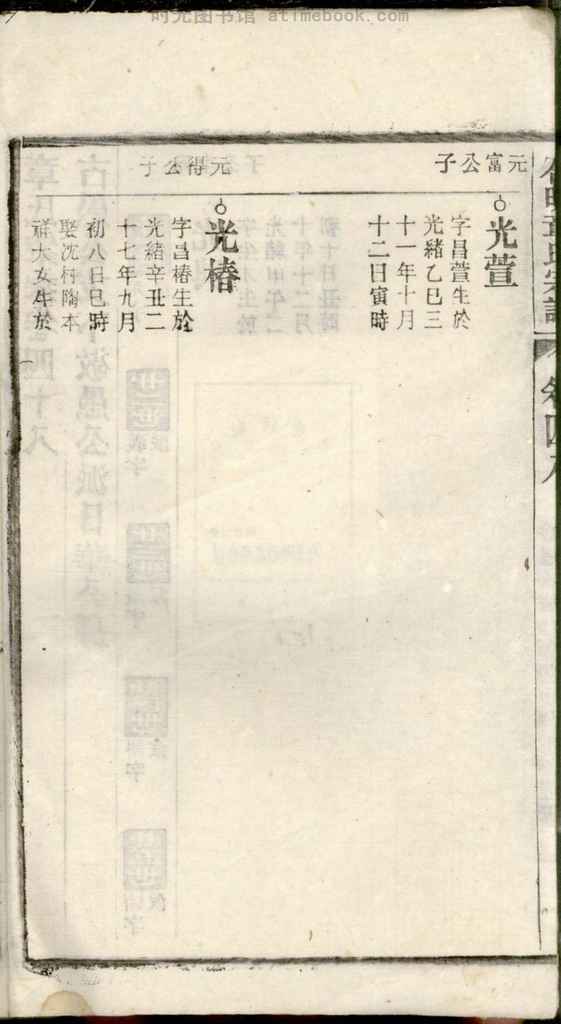 时光图书馆 atimebook.com
元富公子
光萱
字昌萱生於
光緒乙巳三
十一年十月
十二日寅時
元得公子
光椿
字昌椿生於
光緒辛丑二
十七年九月
初八日巳時
娶沈村陶本
祥大女生於